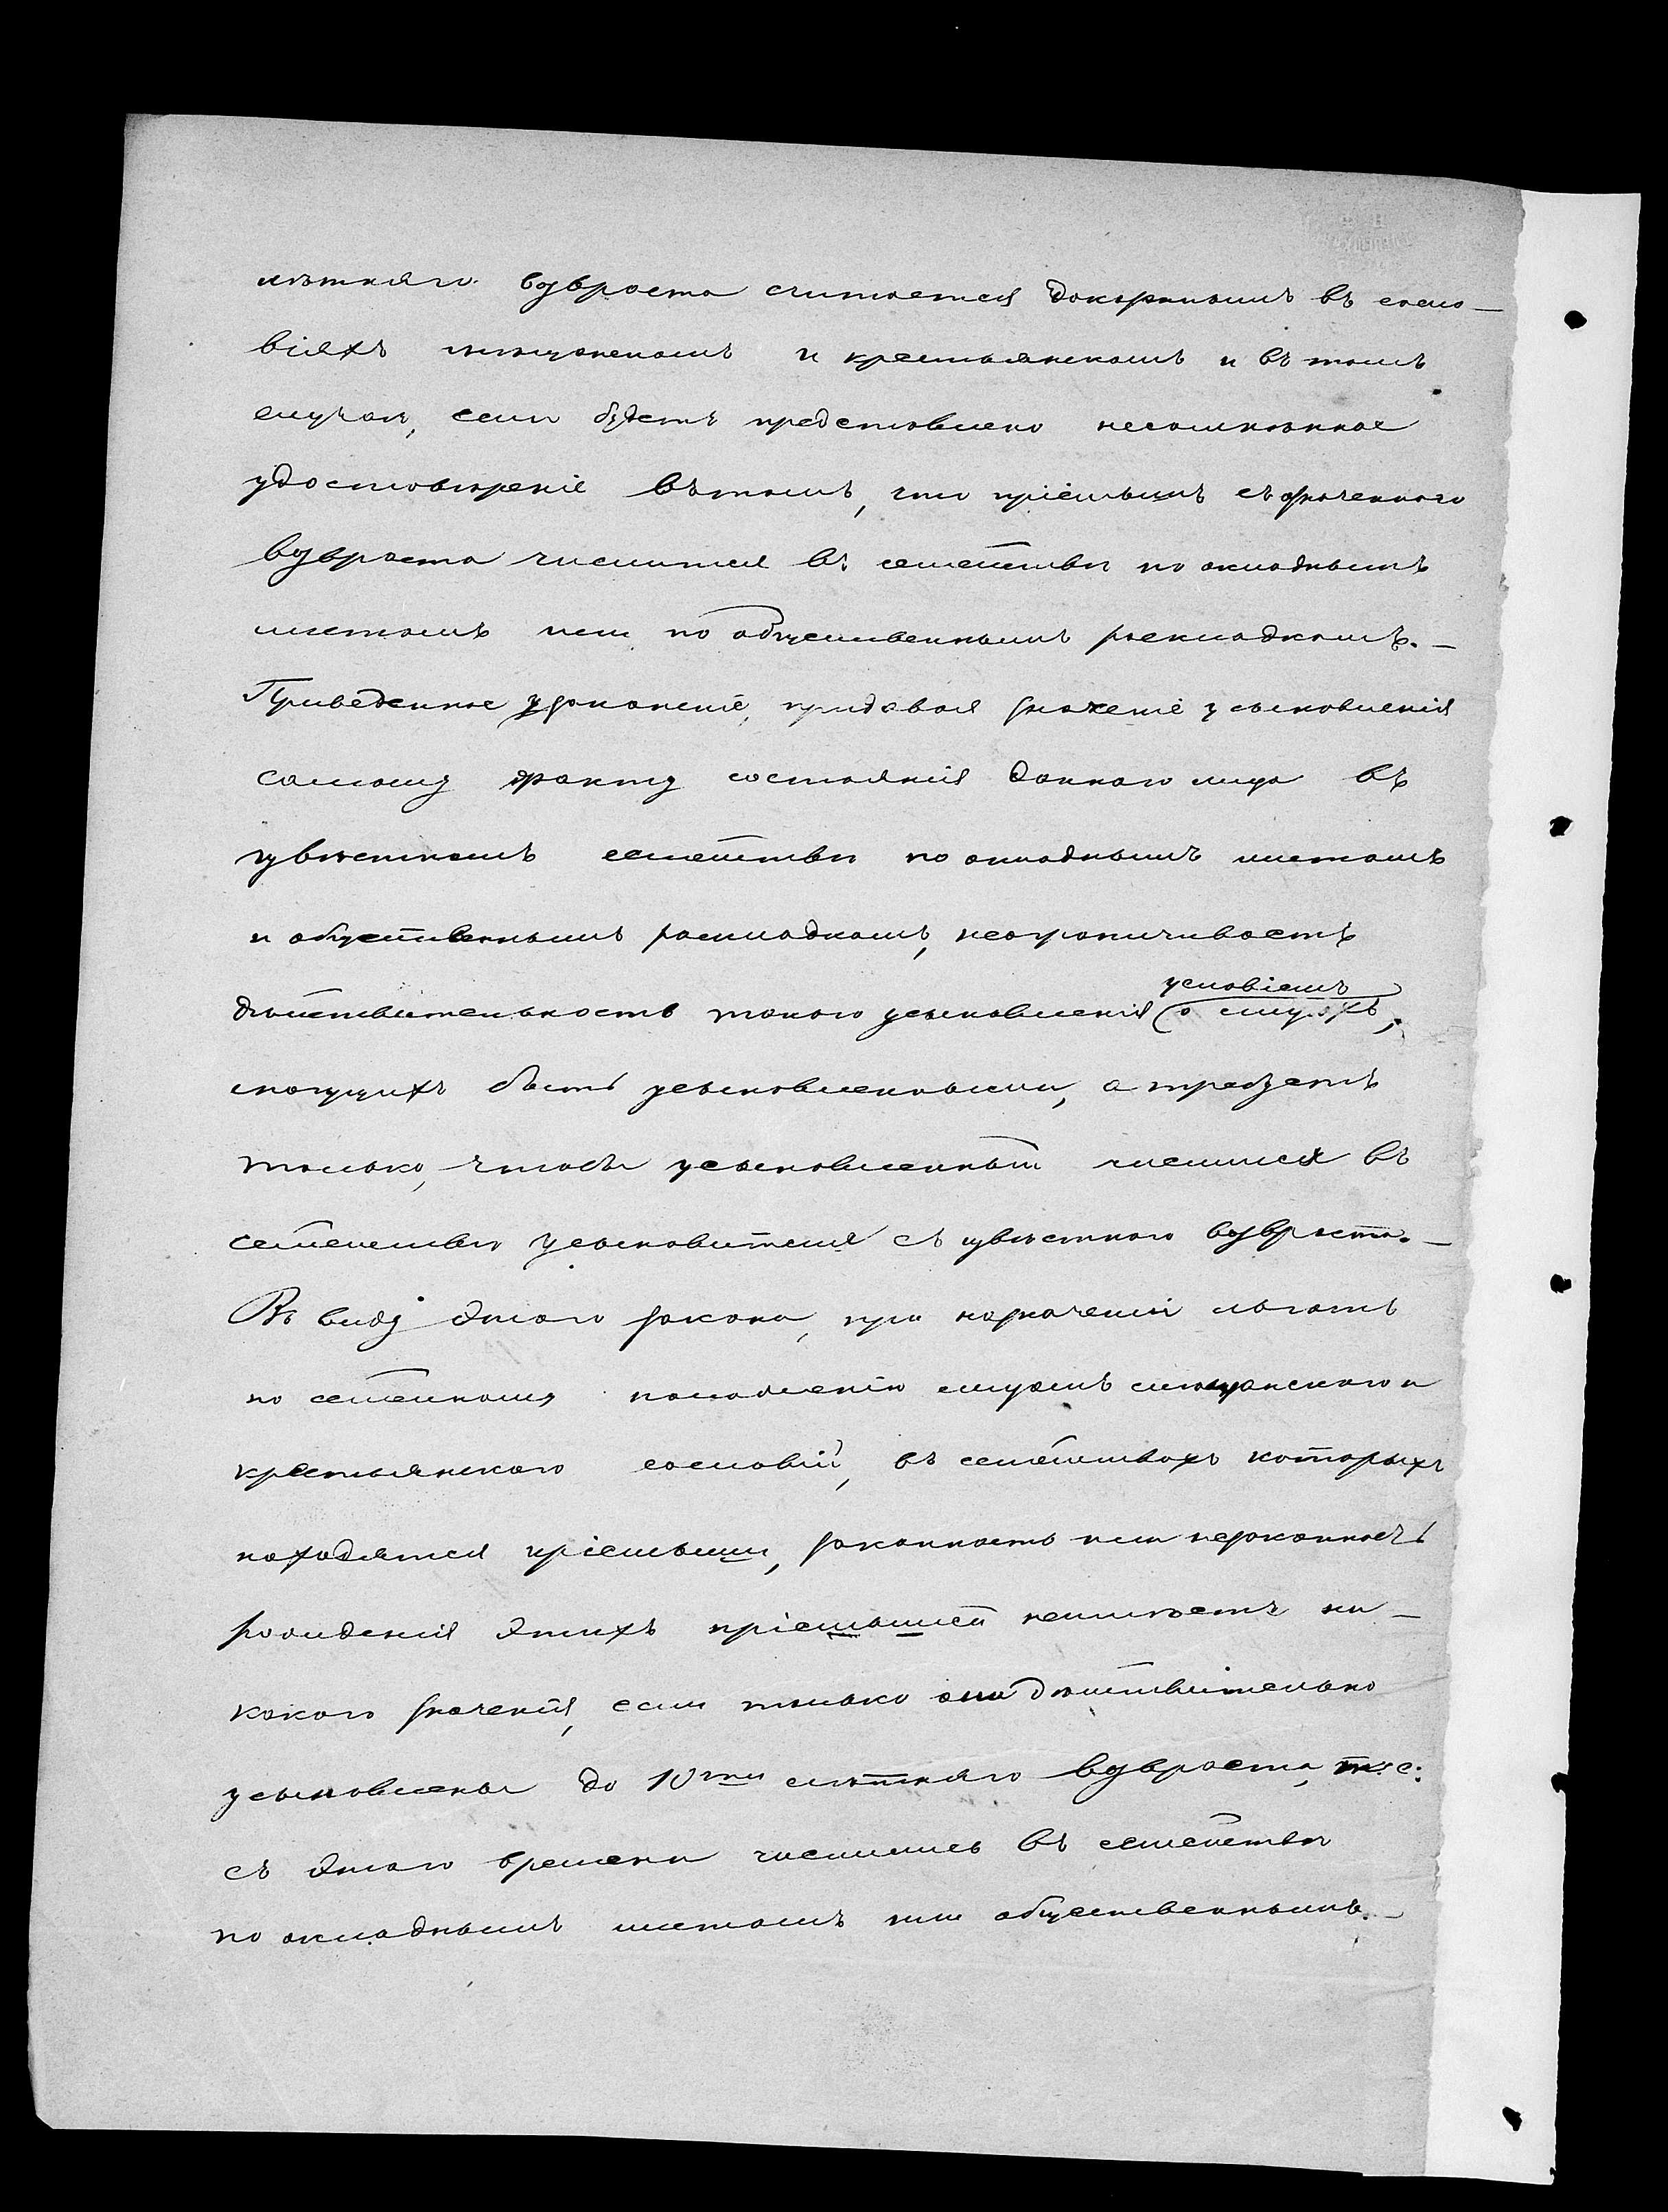 лѣтняго возраста считается доказаннымъ въ сосло-
віяхъ мѣщанскомъ и крестьянскомъ и въ томъ
случаѣ, если будетъ представлено несомнѣнное
удостовѣреніе въ томъ, что пріемышъ съ означеннаго
возраста числится въ семействѣ по окладнымъ
листамъ или по общественнымъ раскладкамъ. —
Приведенное узаконеніе, придавая значеніе усыновленія
самому факту состоянія даннаго лица въ
извѣстномъ семействѣ по окладнымъ листамъ
и общественнымъ раскладкамъ, неограничиваетъ
условіемъ
дѣйствительность такого усыновленія (о случ.яхъ,
могущихъ быть усыновленными, а требуетъ
только, чтобы усыновленный числился въ
семействѣ усыновителя съ извѣстнаго возраста. —
Въ виду этого закона, при назначеніи льготъ
по семейному положенію лицамъ мѣщанскаго и
крестьянскаго сословій, въ семействахъ которыхъ
находятся пріемыши, законность или незаконность
рожденія этихъ пріемышей неимѣетъ ни-
какого значенія, если только они дѣйствительно
усыновлены до 10ти лѣтняго возраста, т. е.
съ этого времени числились въ семействѣ
по окладнымъ листамъ или общественнымъ. —